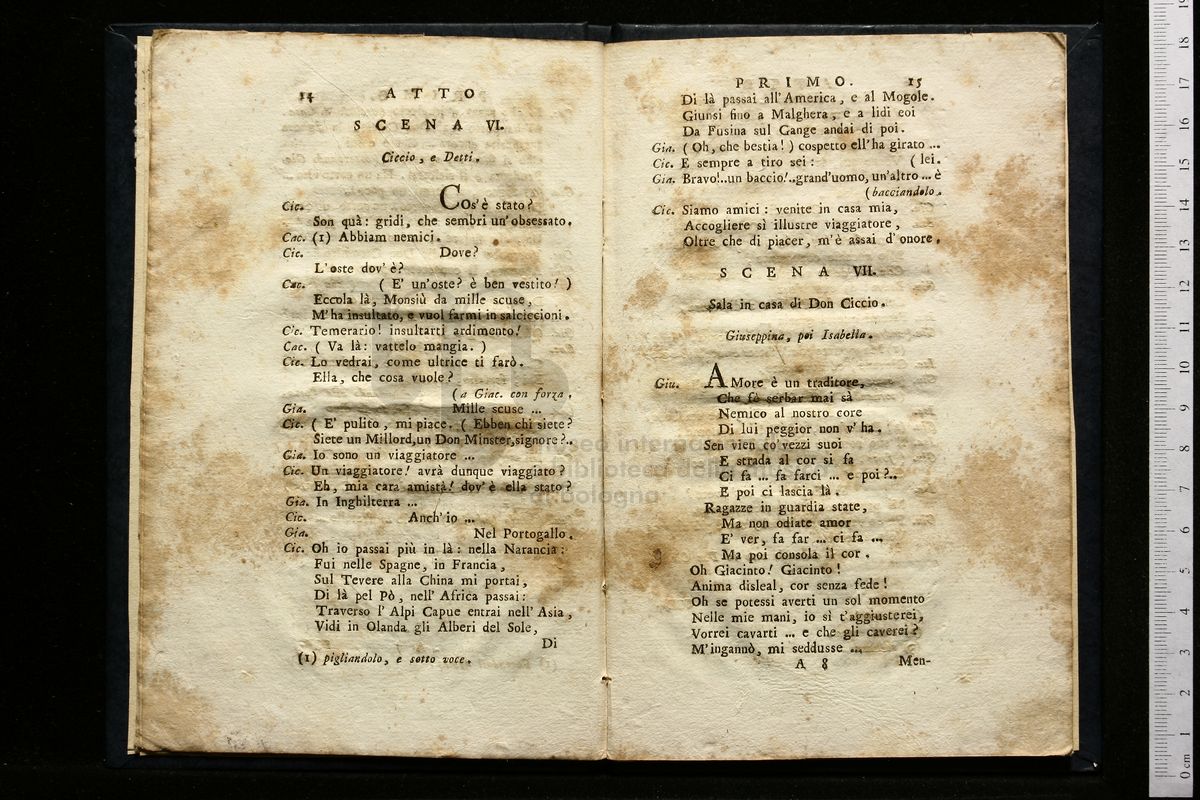 14 ATTO
SCENA VI.
Ciccio, e Detti.
Cic. Cos'è stato?
Son quà: gridi, che sembri un'obsessato.
Cac. (1) Abbiam nemici.
Cic. Dove?
L'oste dov'è?
Cac. (E' un'oste? è ben vestito!)
Eccola là, Monsiù da mille scuse,
M'ha insultato, e vuol farmi in salciccioni.
Cic. Temerario! insultarti ardimento!
Cac. (Va là: vattelo mangia.)
Cic. Lo vedrai, come ultrice ti farò.
Ella, che cosa vuole?
(a Giac. con forza.
Gia. Mille scuse ...
Cic. (E' pulito, mi piace. (Ebben chi siete?
Siete un Millord, un Don Minster, signore?..
Gia. Io sono un viaggiatore ...
Cic. Un viaggiatore! avrà dunque viaggiato?
Eh, mia cara amistà! dov'è ella stato?
Gia. In Inghilterra ...
Cic. Anch'io ...
Gia. Nel Portogallo.
Cic. Oh io passai più in là: nella Narancia:
Fui nelle Spagne, in Francia,
Sul Tevere alla China mi portai,
Di là pel Pò, nell'Africa passai:
Traverso l'Alpi Capue entrai nell'Asia,
Vidi in Olanda gli Alberi del Sole,
Di
(1) pigliandolo, e sotto voce.
PRIMO. 15
Di là passai all'America, e al Mogole.
Giunsi fino a Malghera, e a lidi eoi
Da Fusina sul Gange andai di poi.
Gia. (Oh, che bestia!) cospetto ell'ha girato ...
Cic. E sempre a tiro sei: (lei.
Gia. Bravo!..un baccio!..grand'uomo, un'altro ... è
(bacciandolo.
Cic. Siamo amici: venite in casa mia,
Accogliere sì illustre viaggiatore,
Oltre che di piacer, m'è assai d'onore.
SCENA VII.
Sala in casa di Don Ciccio.
Giuseppina, poi Isabella.
Giu. AMore è un traditore,
Che fè serbar mai sà
Nemico al nostro core
Di lui peggior non v'ha.
Sen vien co'vezzi suoi
E strada al cor si fa
Ci fa ... fa farci ... e poi?..
E poi ci lascia là.
Ragazze in guardia state,
Ma non odiate amor
E' ver, fa far ... ci fa ...
Ma poi consola il cor.
Oh Giacinto! Giacinto!
Anima disleal, cor senza fede!
Oh se potessi averti un sol momento
Nelle mie mani, io sì t'aggiusterei,
Vorrei cavarti ... e che gli caverei?
M'ingannò, mi seddusse ...
A 8 Men-